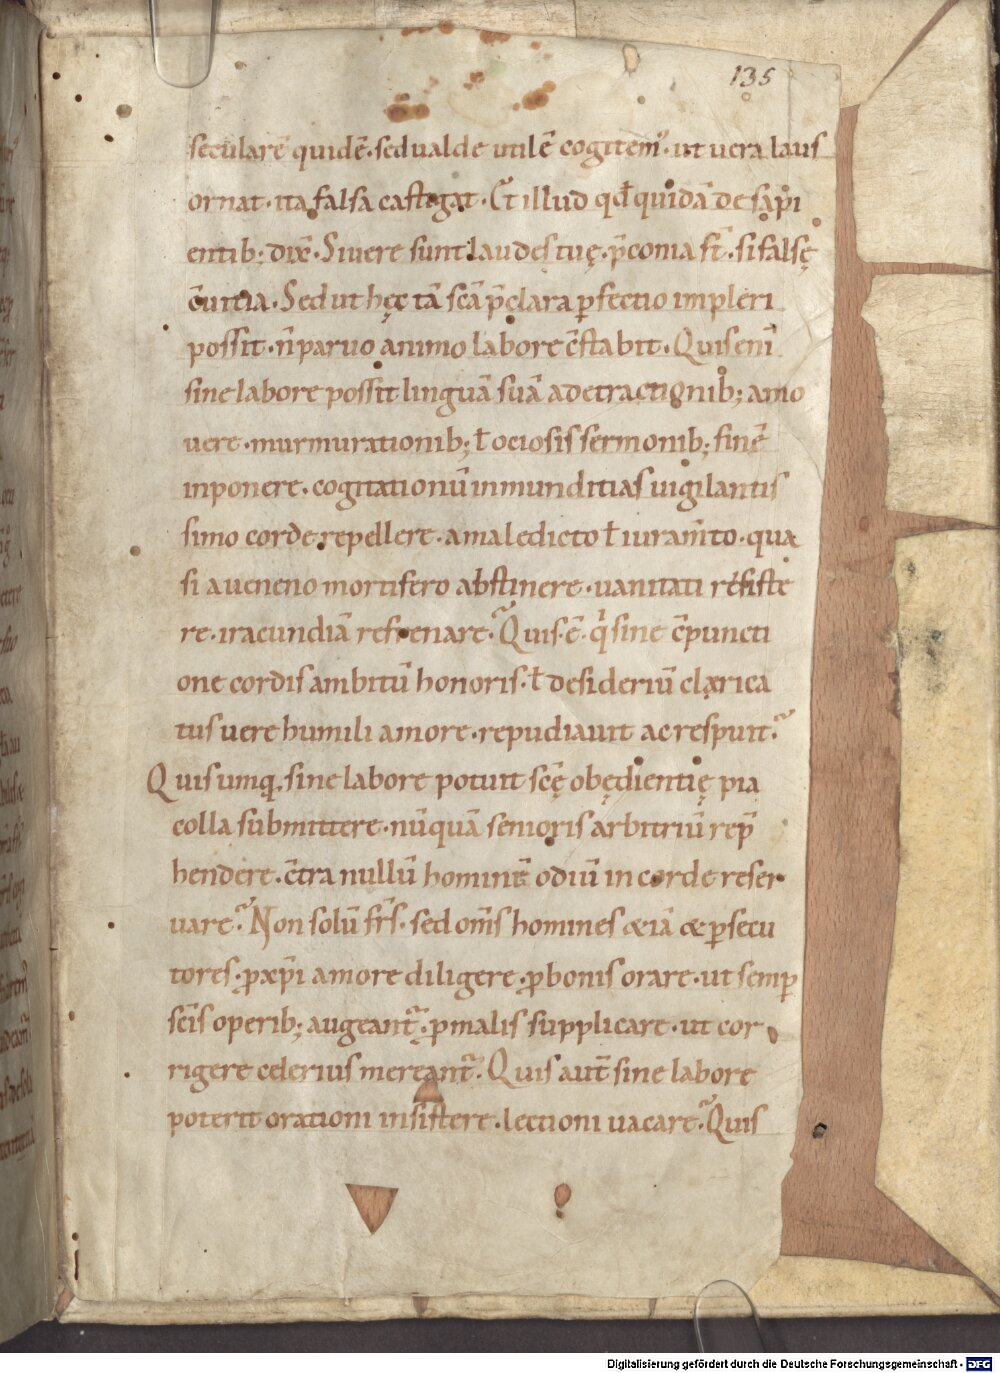 135
secularē quidē· sed ualde utilē cogitem᷒· ut uera laus
ornat· ita falsa castigat· Et illud qđ quidā de sapi
entib; dix̄· Si uere sunt laudes tuę· p̄conia st̄· si falsę
c̄uitia· Sed ut hęc tā sc̄a p̄clara ꝑfectio impleri
possit· n̄ paruo animo labore c̄stabit· Quis eni̅
sine labore possit linguā suā a detractionib; amo
uere· murmurationib; ł ociosis sermonib; finē
inponere· cogitationū inmunditias uigilantis
simo corde repellere· a maledicto ł iuram̅to· qua
si a ueneno mortifero abstinere· uanitati resiste
re· iracundiā refrenare· Quis ē· q̇ sine c̄puncti
one cordis ambitū honoris· ł desideriū clarica
tus uere humili amore· repudiauit ac respuit·
Quisumq; sine labore potuit sc̄ę obędientię pia
colla submittere· nūquā senioris arbitriū rep̄
hendere· c̄tra nullū hominē odiū in corde reser
uare· Non solū frs̄· sed om̄s homines &iā & ꝑsecu
tores· ꝓ xp̄i amore diligere· ꝓ bonis orare· ut semꝑ
sc̄is operib; augeant᷒· ꝓ malis supplicare· ut cor
rigere celerius mereant᷒· Quis aut̄ sine labore
poterit orationi insistere· lectioni uacare· Quis
Digitalisierung gefördert durch die Deutsche Forschungsgemeinschaft - DFG